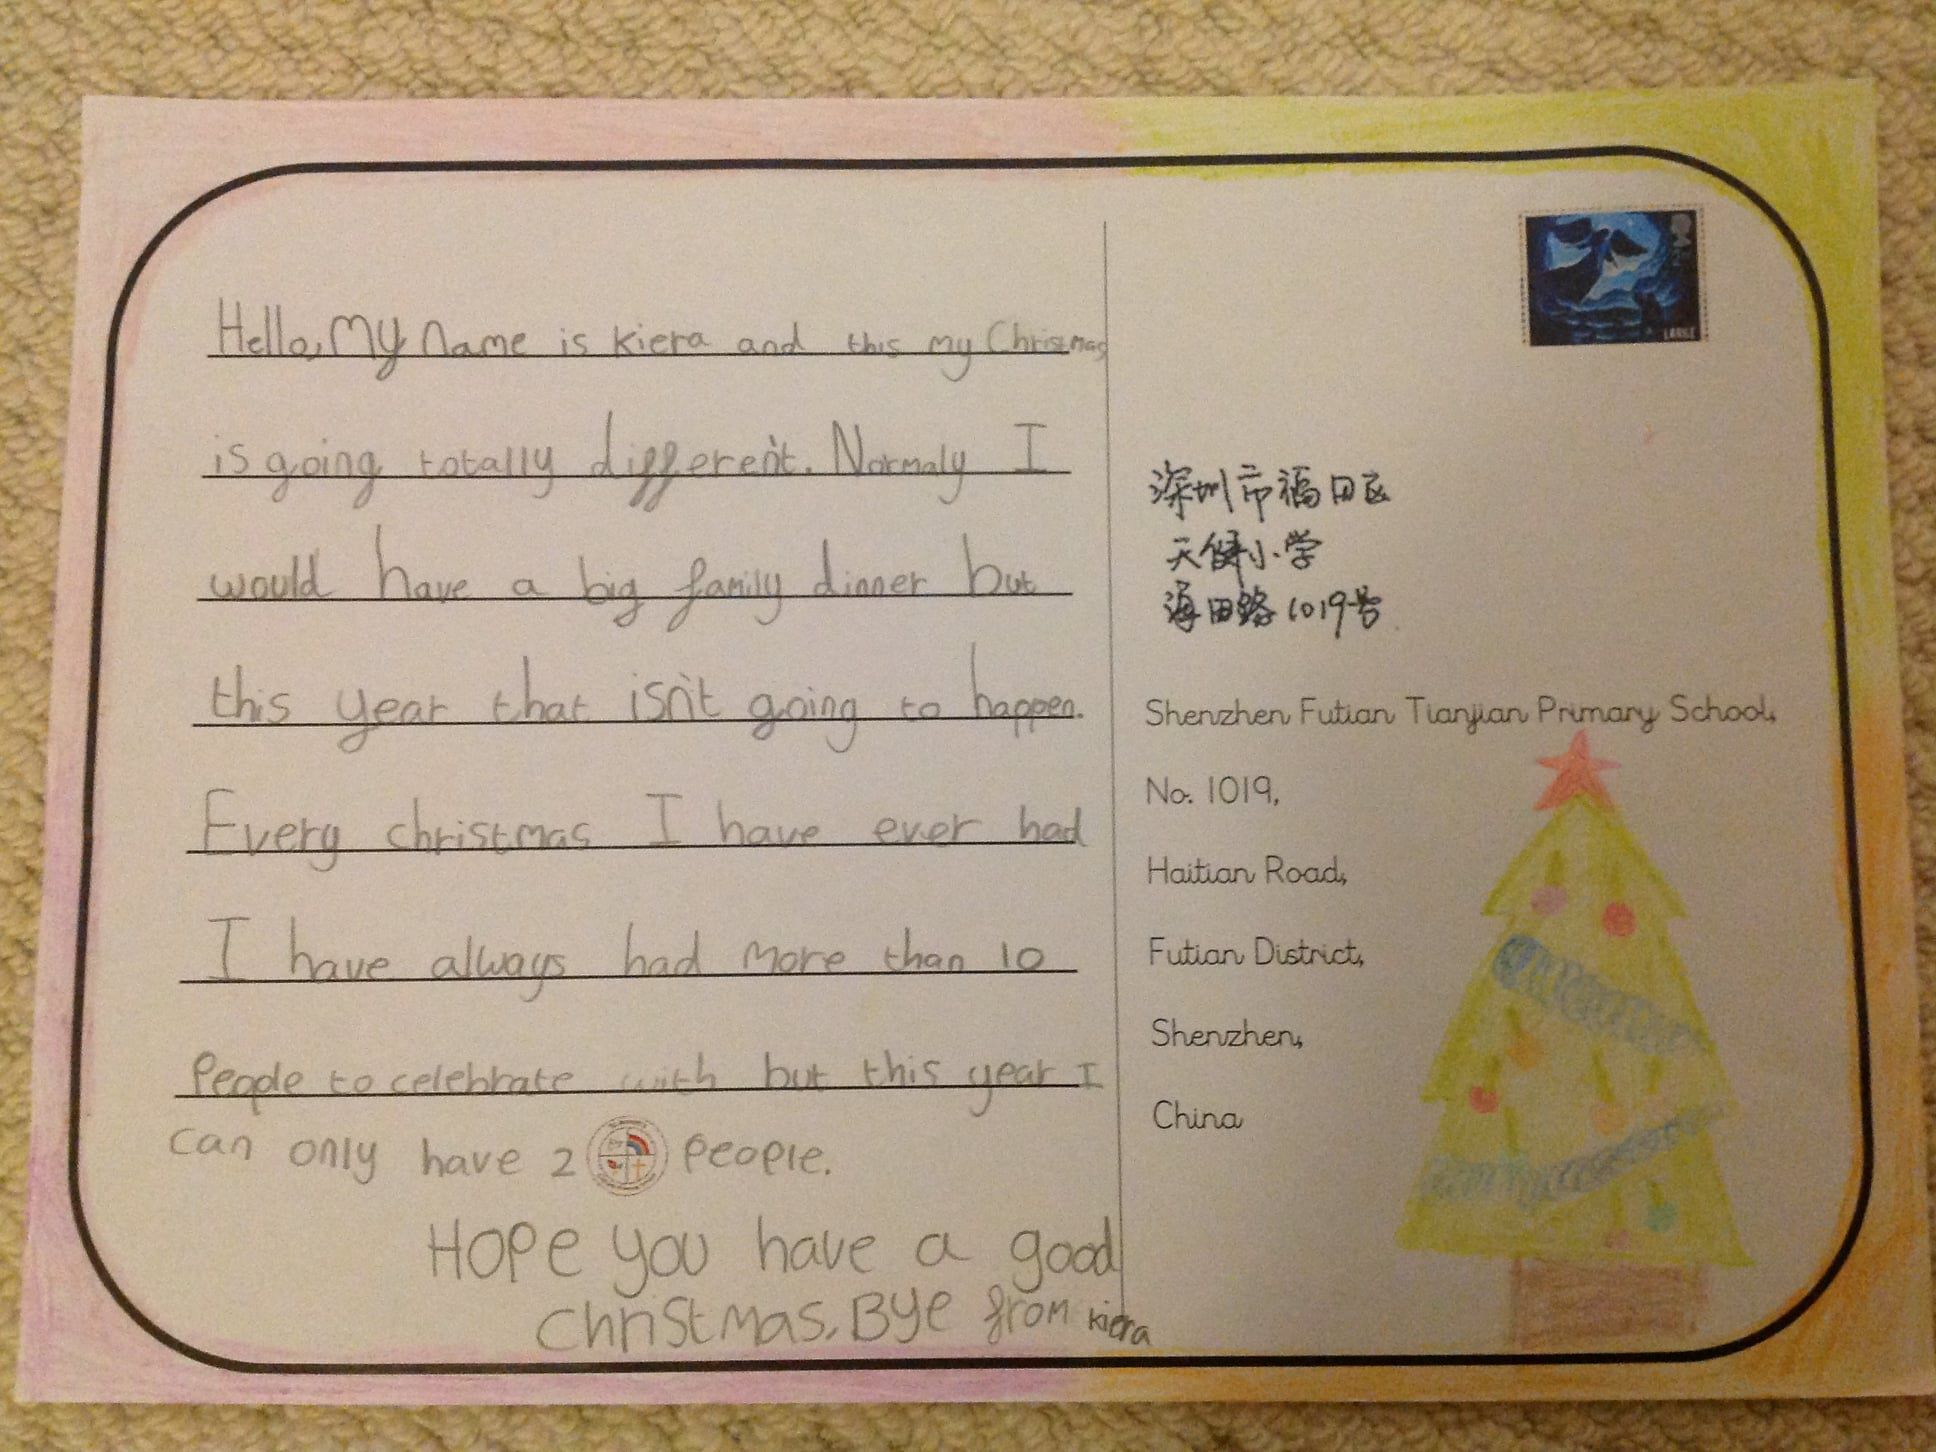 Hello, My name is Kiera and this my Christmas
is going totally different. Normaly I
would have a big family dinner but
this year that isn't going to happen.
Every christmas I have ever had
I have always had more than 10
People to celebrate with but this year I
can only have 2 People.
Hope you have a good
christmas. Bye from kiera
LARGE
深圳市福田区
天健小学
海田路1019号
Shenzhen Futian Tianjian Primary School,
No. 1019,
Haitian Road,
Futian District,
Shenzhen,
China